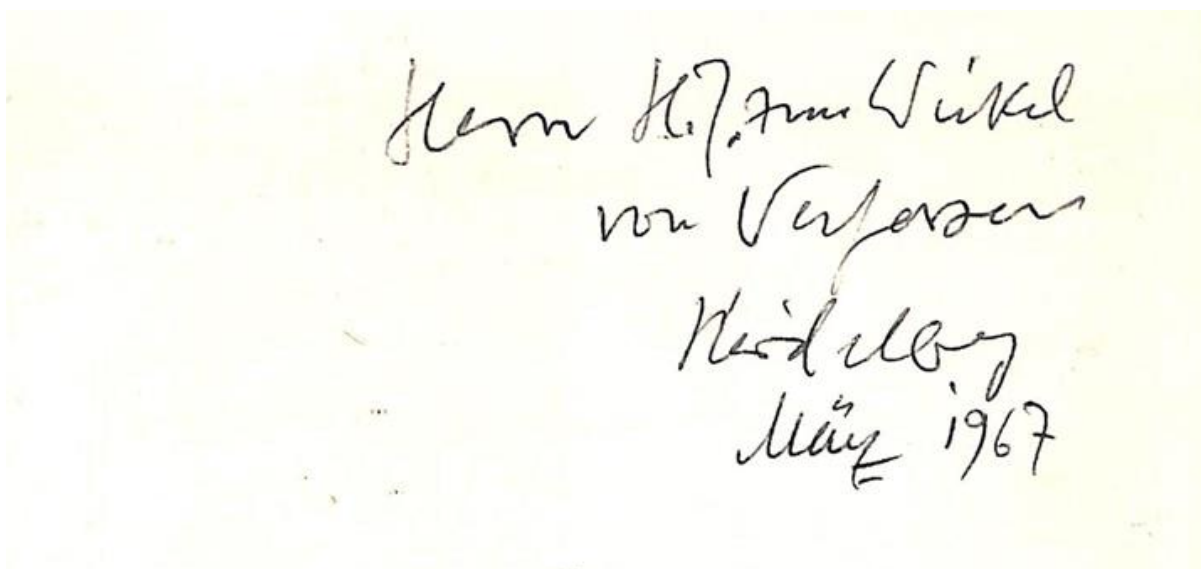 Herrn H. J. zum Winkel
vom Verfasser
Heidelberg
März 1967